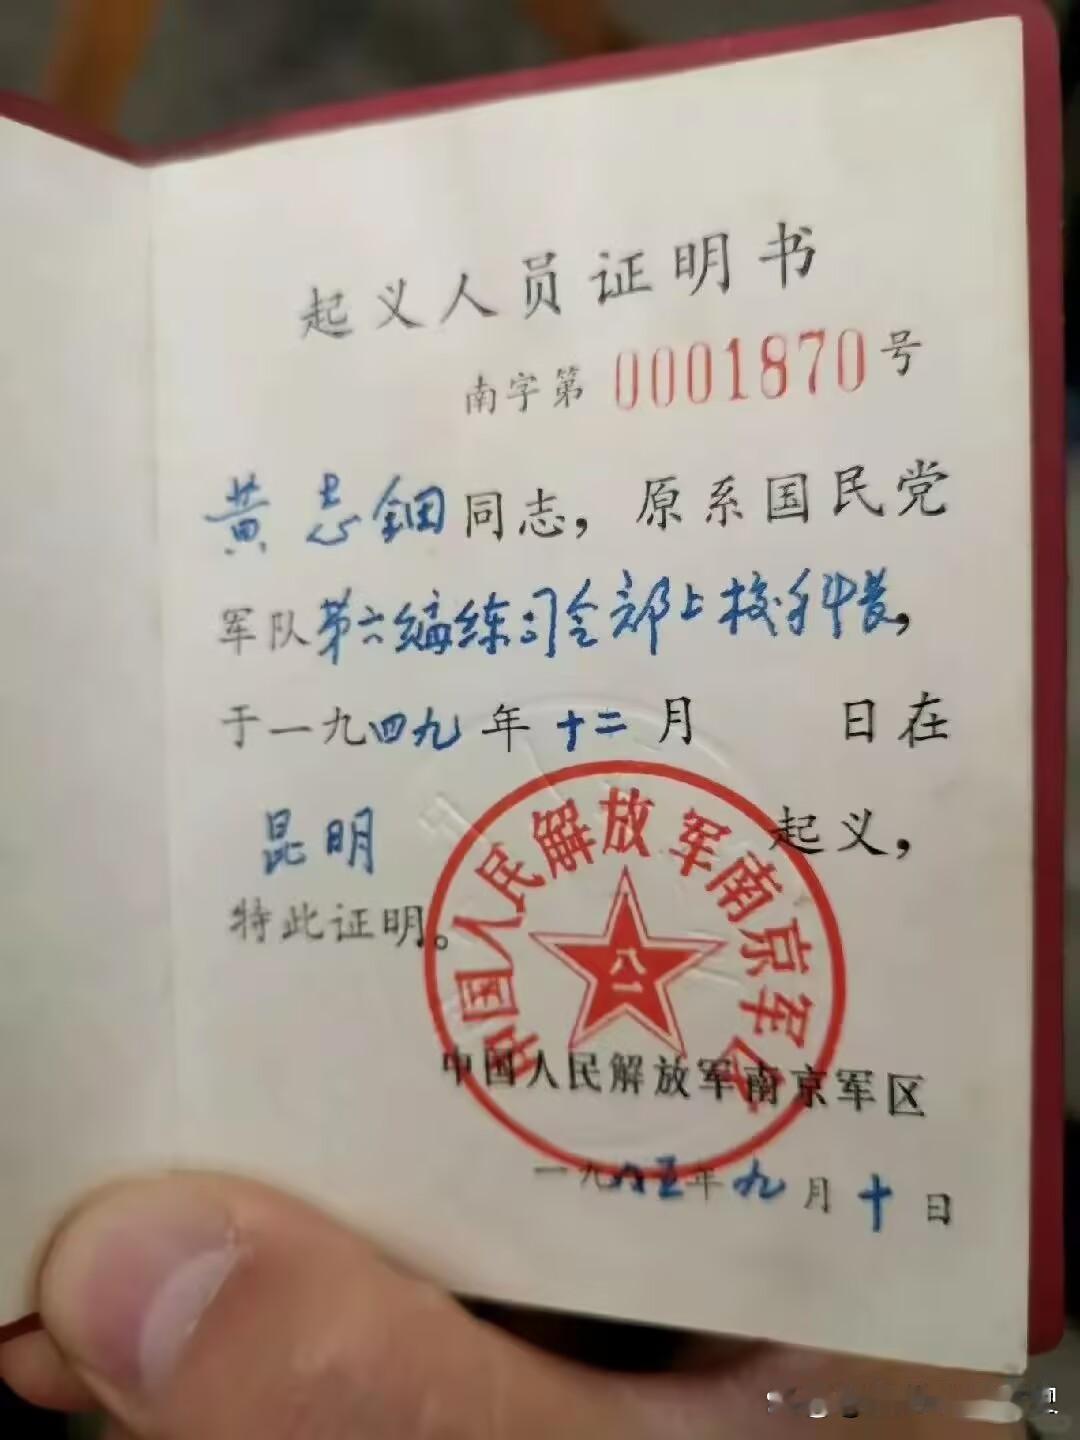 起义人员证明书
南字第 0001870 号
黄志钿同志，原系国民党
军队第六编练司令部上校科长，
于一九四九年十二月 日在
昆明 起义，
特此证明。
中国人民解放军南京军区
八一
中国人民解放军南京军区
一九八五年九月十日